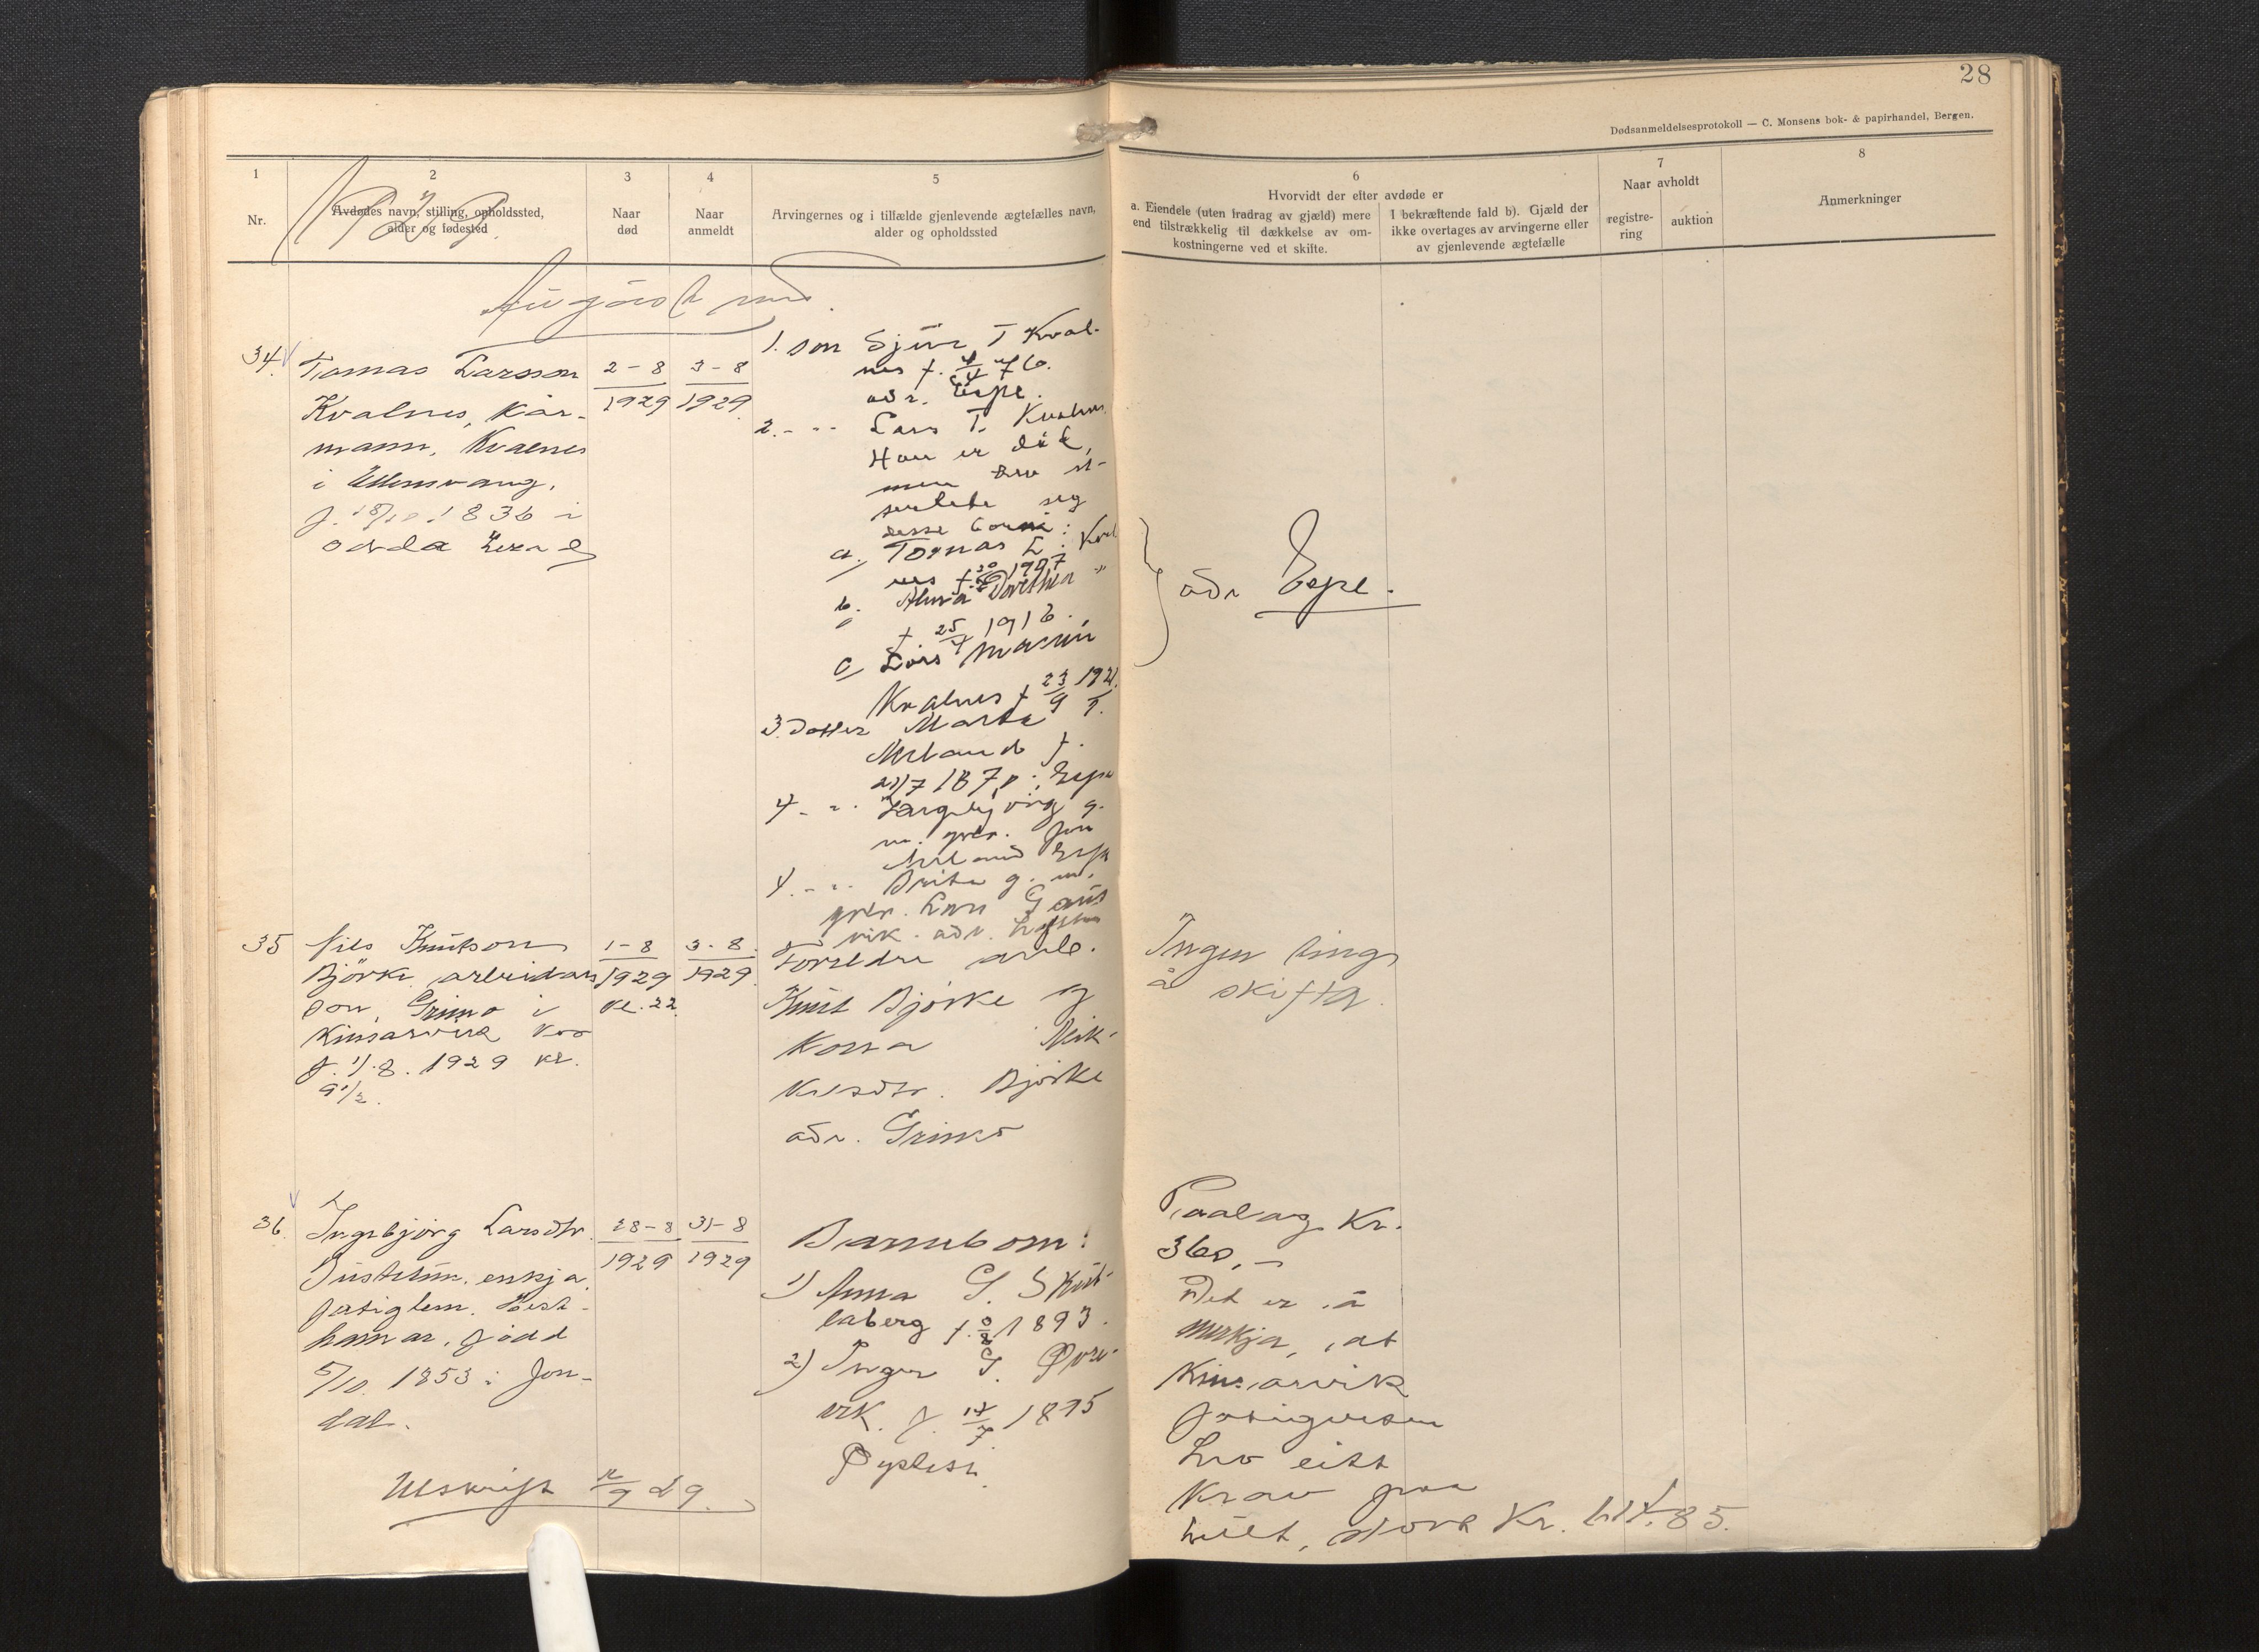 28
Dødsanmeldelsesprotokoll — C. Monsens bok- & papirhandel, Bergen.
1
Nr.
2
Avdødes navn, stilling, opholdssted,
alder og fødested
3
Naar
død
4
Naar
anmeldt
5
Arvingernes og i tilfælde gjenlevende ægtefælles navn,
alder og opholdssted
6
Hvorvidt der efter avdøde er
a. Eiendele (uten fradrag av gjæld) mere
end tilstrækkelig til dækkelse av om-
kostningerne ved et skifte.
I bekræftende fald b). Gjæld der
ikke overtages av arvingerne eller
av gjenlevende ægtefælle
7
Naar avholdt
registre-
ring
auktion
8
Anmerkninger
1929
August
34.
Tomas Larsson
Kvalnes, kår-
mann, Kvalnes
i Ullensvang,
f. 18/10 1836 i
odda herad
2-8
1929
3-8
1929
1. son Sjur T Kval-
nes f.
adr. Espe.
2. - " - Lars T. Kvalnes
Han er død,
men
seg
desse borni:
a. Tomas L. Kval
nes f. 1907
b. Anna Dorthea "
f. 25/4 1916.
c Lars Martin
Kvalnes f 23/9 1921.
3. Dotter Marta T.
Meland f.
Espe
4 - " - Ingebjørg g.
m. grdr. Jon
Meland Espe
4. - " - Brita g. m.
grdr. Lars
vik. adr.
adr Espe.
35
Nils Knutson
Björke, arbeidar
son, Grimo i
Kinsarvik
f. 1/8. 1929 kl.
9 1/2.
1-8
1929
kl. 22.
3-8.
1929.
Foreldre arb.
Knut Bjørke og
Björke
adr. Grimo
Ingen ting
å skifta.
36.
Ingebjörg Larsdtr.
enkja,
fatiglem. Hest-
hamar, född
5/10. 1853 i Jon-
dal.
28-8
1929
31-8
1929
Barneborn:
1) Anna S. Skut-
laberg f. 1893.
2) Inger S.
vik. f. 14/7 1895
Øystese.
Utskrift 29.
Kr.
360,-
Det er å
merkja, at
Kinsarvik
fatigvesen
hev eitt
Krav paa
buet, stort Kr.